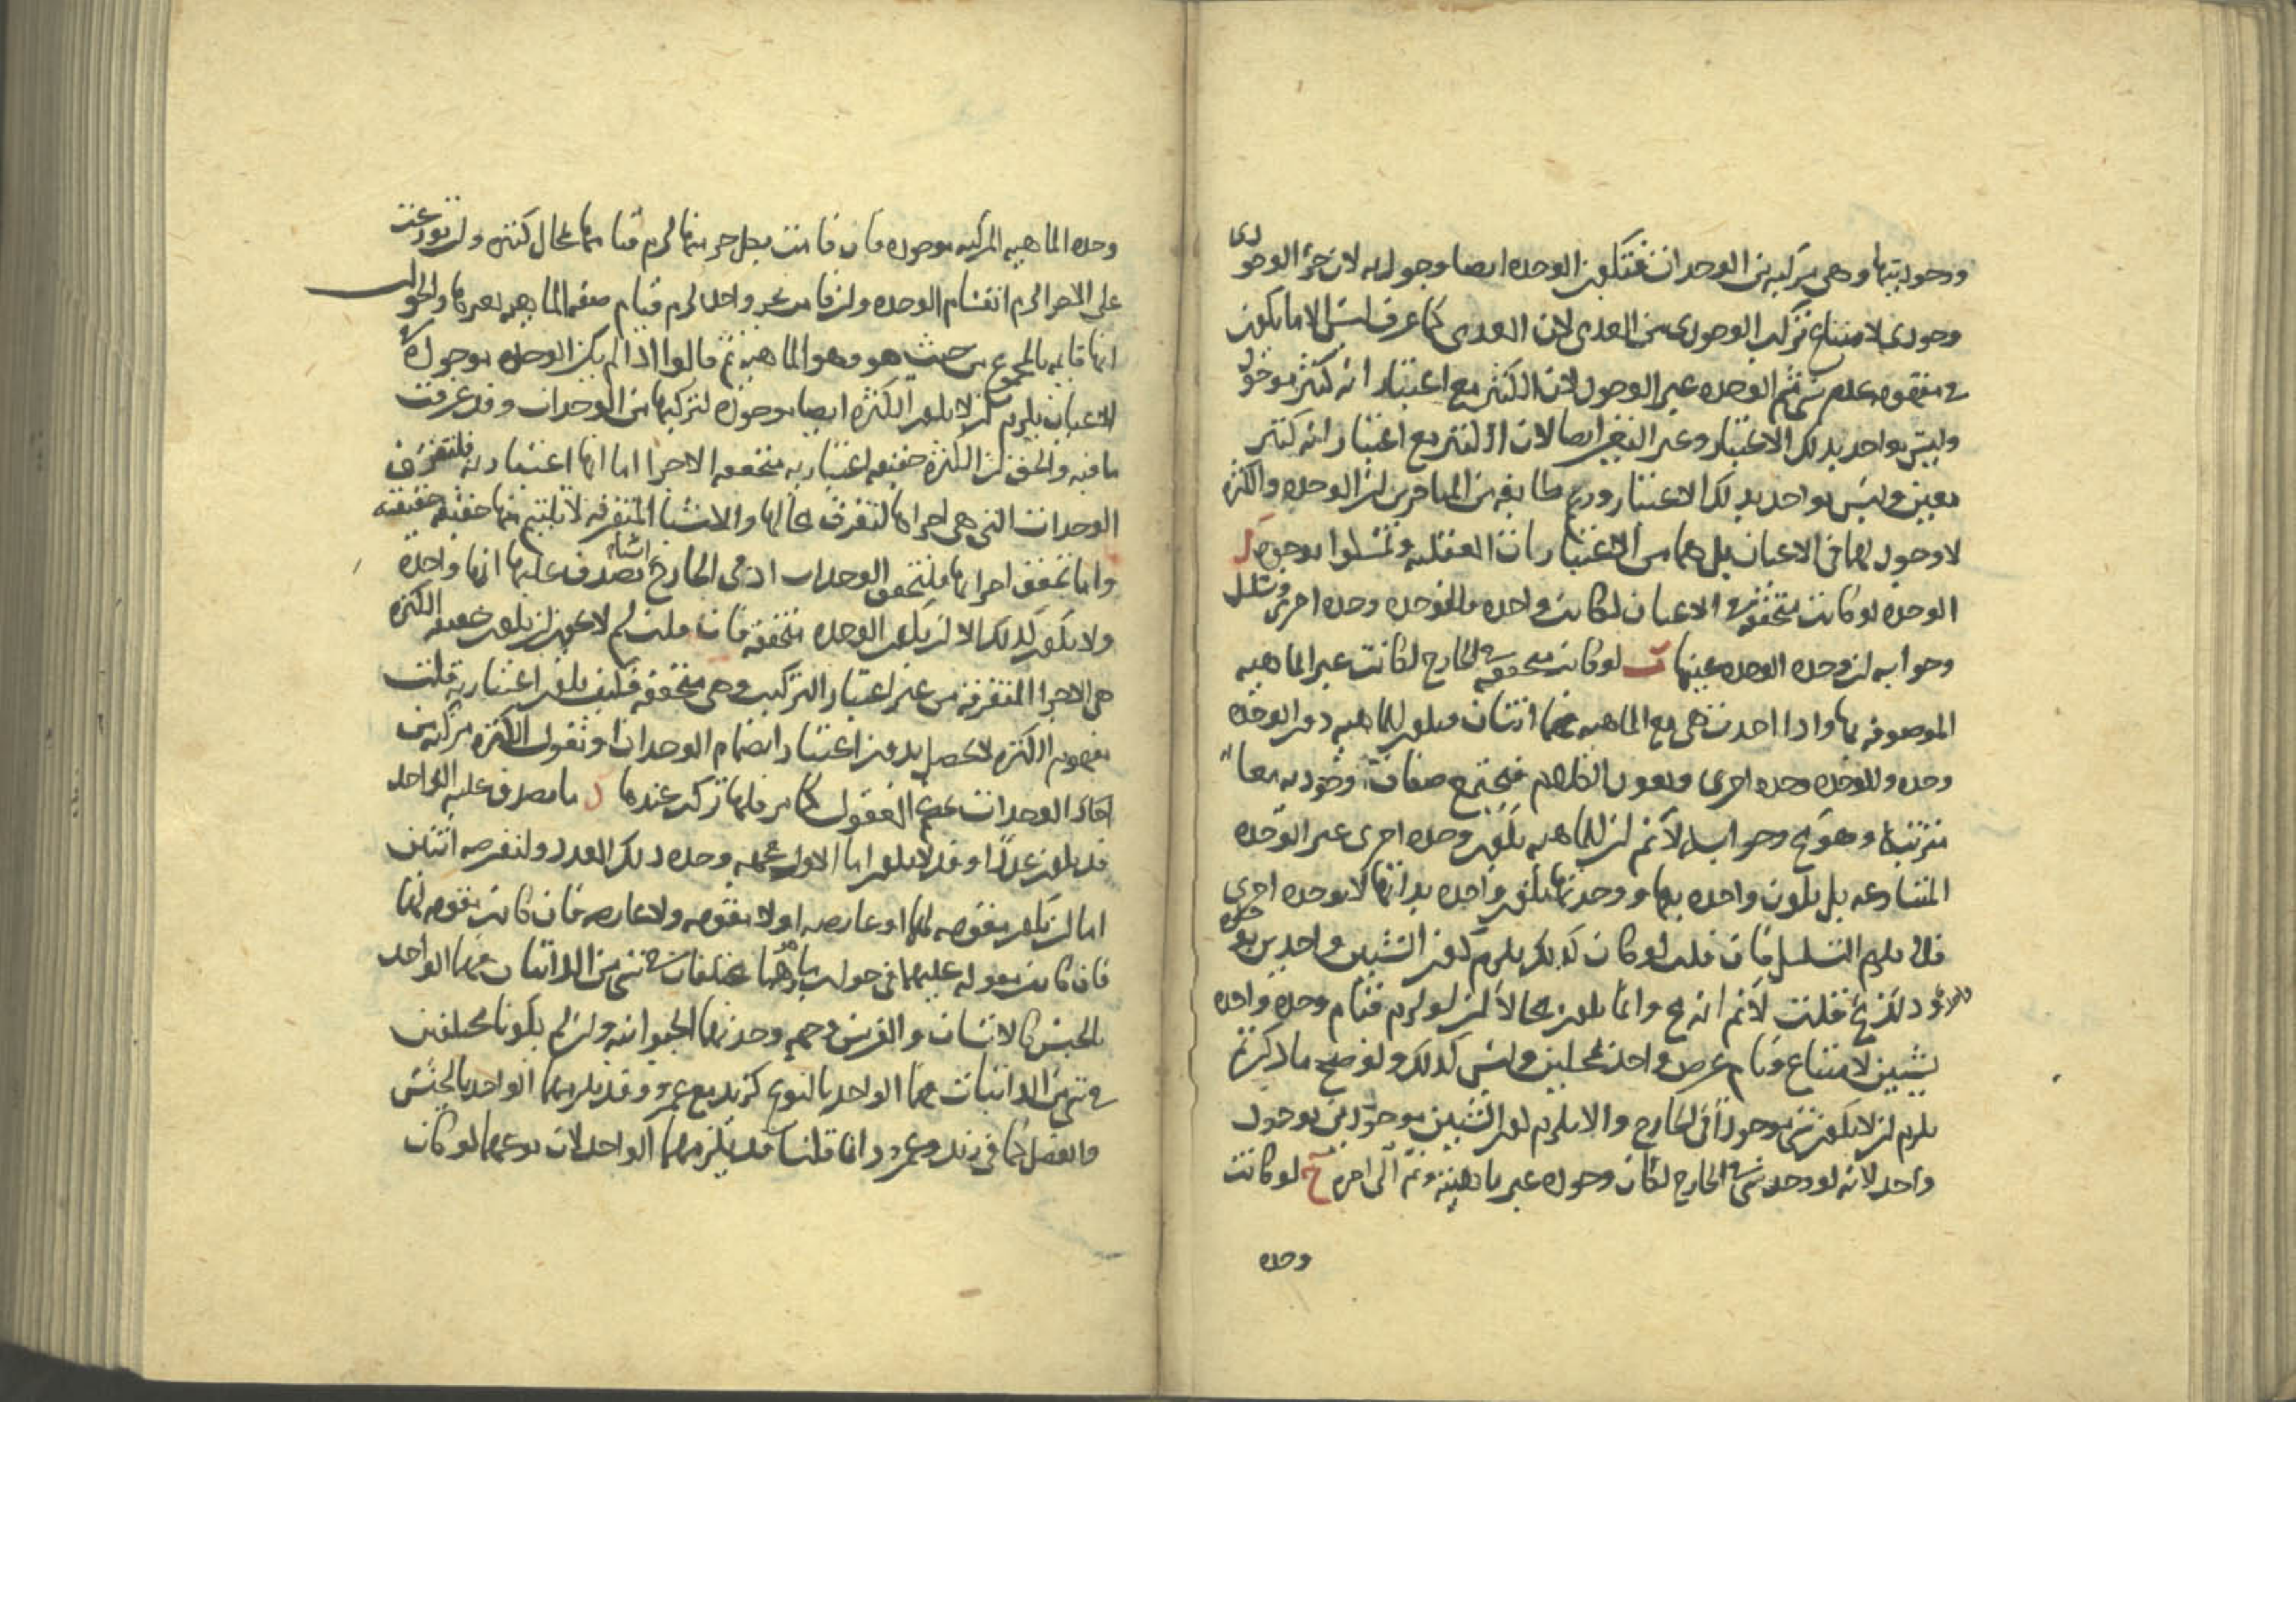 وجوديتها وهي مركبه من الوحدات فتكون الوحده ايضا وجوديه لان جزء الوجودى
وجودى لامتناع تركب الوجودى من العدمى لان العدمى كما عرف ليس الا ما يكون
في مفهومه عدم شى ثم الوحده غير الوجود لان الكثير مع اعتبار انه كثير موجود
وليس بواحد بذلك الاعتبار وغير التعين ايضا لان الكثير مع اعتبار انه كثير
معين وليس بواحد بذلك الاعتبار وزعم طايفه من المتاخرين ان الوحده والكثره
لا وجود لهما في الاعيان بل هما من الاعتبارات العقليه وتمسكوا بوجوه ا
الوحده لو كانت متحققه في الاعيان لكانت واحده فللوحده وحده اخرى وتسلسل
وجوابه ان وحده الوحده عينها ب لو كانت متحققه في الخارج لكانت غير الماهيه
الموصوفه بها واذا اخذت هي مع الماهيه فهما اثنتان فيكون للماهيه دون الوحده
وحده وللوحده وحده اخرى ويعود الكلام فتجتمع صفات وجوديه معا
مترتبه وهو مح وجوابه لا نم ان للماهيه تكون وحده اخرى غير الوحده
المتنازعه بل تكون واحده بها ووحدتها تكون واحده بذاتها لا بوحده اخرى
فلا يلزم التسلسل فان قلت لو كان كذلك يلزم كون الشيئين واحدين بوحده
واحده وذلك مح قلت لا نم انه مح وانما يكون محالا ان لو لزم قيام وحده واحده
بشيئين لامتناع قيام عرض واحد بمحلين وليس كذلك ولو صح ما ذكرتم
يلزم ان لا يكون شى موجودا في الخارج والا يلزم كون الشيئين موجودين بوجود
واحد لانه لو وجد شى في الخارج لكان وجوده غير ماهيته وتم الى اخره ج لو كانت
وحده
وحده الماهيه المركبه موجوده فان قامت بكل جزء منها لزم قيامها بمحال كثيره وان توزعت
على الاجزا لزم انقسام الوحده وان قامت بجزء واحد لزم قيام صفه الماهيه بغيرها والجواب
انها قايمه بالمجموع من حيث هو وهو الماهيه ثم قالوا اذا لم يكن الوحده موجوده في
الاعيان يلزم ان لا يكون الكثره ايضا موجوده لتركبها من الوحدات وقد عرفت
ما فيه والحق ان الكثره حقيقه اعتباريه متحققه الاجزا اما انها اعتباريه فلتفرق
الوحدات التي هي اجزاها لتفرق محالها والاشيا المتفرقه لا يلتئم منها حقيقه حقيقيه
واما تحقق اجزايها فلتحقق الوحدات اذ في الخارج اشياء يصدق عليها انها واحده
ولا يكون كذلك الا ان يكون الوحده متحققه فان قلت لم لا يجوز ان يكون حقيقه الكثره
هي الاجزا المتفرقه من غير اعتبار التركيب وهي متحققه فكيف يكون اعتباريه قلت
مفهوم الكثره لا يحصل بدون اعتبار انضمام الوحدات او نقول الكثره مركبه من
احاد الوحدات عند العقول كما مر فلها تركب عندها د ما يصدق عليه الواحد
قد يكون عددا وقد لا يكون اما الاول فجهه وحده ذلك العدد ولنفرضه اثنين
اما ان تكون مقومه لهما او عارضه او لا مقومه ولا عارضه فان كانت مقومه لهما
فان كانت مقوله عليهما في جواب ما هما مختلفان في شى من الذاتيات فهما الواحد
بالجنس كالانسان والفرس فجهه وحدتهما الحيوانيه وان لم يكونا مختلفين
في شى من الذاتيات فهما الواحد بالنوع كزيد مع عمرو وقد يلزمهما الواحد بالجنس
والفصل كما في زيد وعمرو وانما قلنا قد يلزمهما الواحد لان نوعهما لو كان